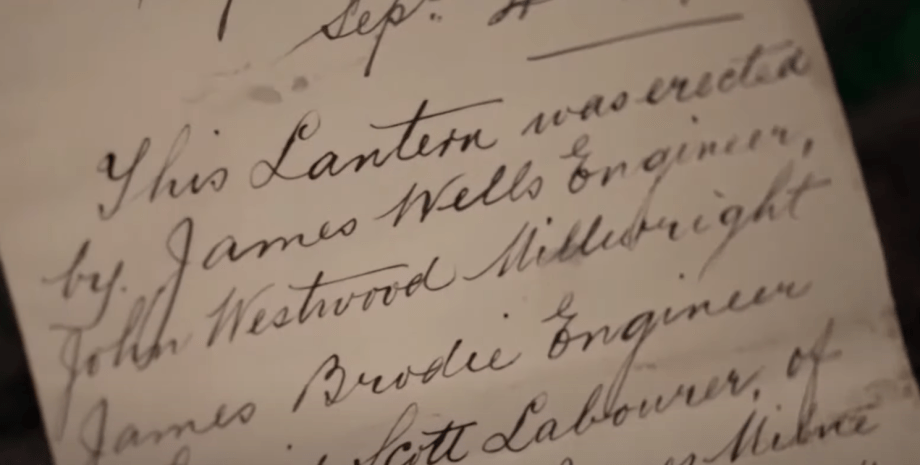 Sep^r. 4
This Lantern was erected
by. James Wells Engineer,
John Westwood Millwright
James Brodie Engineer
Scott Labourer, of
James Milne